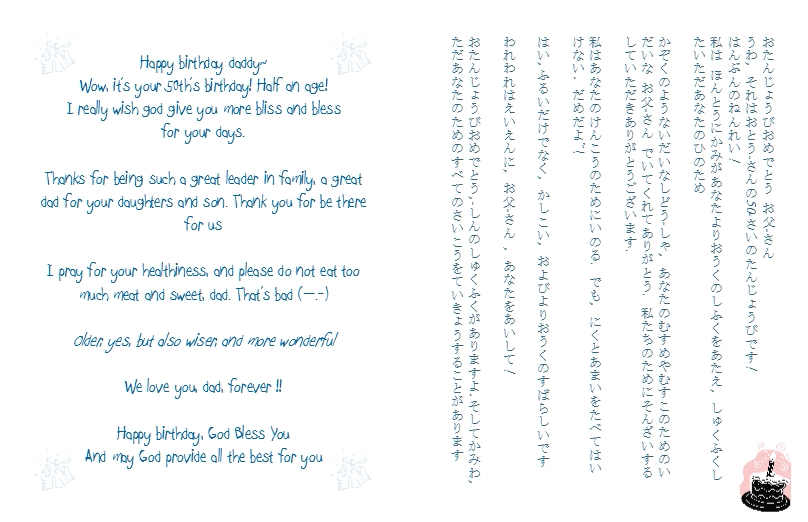 Happy birthday daddy~
Wow, it's your 50th's birthday! Half an age!
I really wish god give you more bliss and bless
for your days.
Thanks for being such a great leader in family, a great
dad for your daughters and son. Thank you for be there
for us
I pray for your healthiness, and please do not eat too
much meat and sweet, dad. That's bad (—.–)
Older, yes, but also wiser, and more wonderful
We love you, dad, forever !!
Happy birthday, God Bless You
And may God provide all the best for you
おたんじょうびおめでとう お父-さん
うわ、それはおとう-さんの50-さいのたんじょうびです!
はんぶんのねんれい!
私は ほんとうにかみがあなたよりおうくのしふくをあたえ、しゅくふくし
たいただあなたのひのため
かぞくのようないだいなしどう-しゃ、あなたのむすめやむすこのためのい
だいな お父-さん でいてくれてありがとう. 私たちのためにそんざいする
していただきありがとうございます.
私はあなたのけんこうのためにいのる. でも、にくとあまいをたべてはい
けない. だめだよ~!
はい、ふるいだけでなく、かしこい、およびよりおうくのすばらしいです
われわれはえいえんに、お父-さん 、あなたをあいして!
おたんじょうびおめでとう、-しんのしゅくふくがありますよ.そしてかみわ、
ただあなたのためのすべてのさいこうをていきょうすることがあります